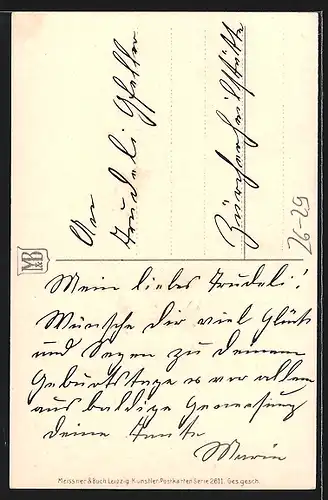 An
Trudeli Gfeller
Zürcherheilstätte
Mein liebes Trudeli!
Wünsche dir viel Glück
und Segen zu deinem
Geburtstage u. vor allem
aus baldige Genesung
deine Tante
Marie
MB
52-26
Meissner & Buch Leipzig. Künstler-Postkarten Serie 2611. Ges. gesch.